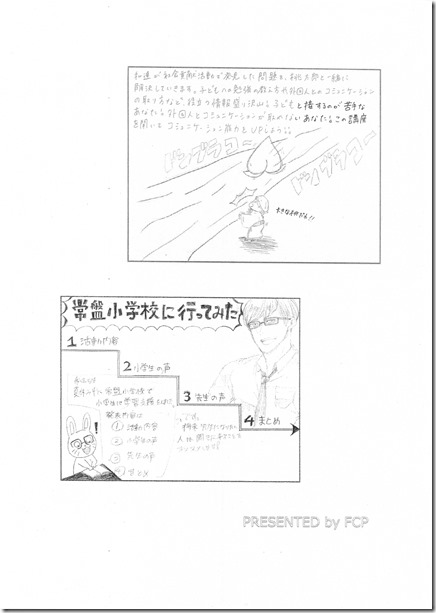 私達が社会貢献活動で発見した問題を、桃太郎と一緒に
解決していきます。子どもへの勉強の教え方や外国人とのコミュニケーション
の取り方など、役立つ情報盛り沢山!子どもと接するのが苦手な
あなたも外国人とコミュニケーションが取れないあなたもこの講座
を聞いてコミュニケーション能力をUPしよう!
ドンブラコー
ドンブラコー
大きなももだわ!!
常盤小学校に行ってみた
1 活動内容
2 小学生の声
3 先生の声
4 まとめ
常盤小学校で
小学生に学習支援
発表内容は
① 活動内容
② 小学生の声
③ 先生の声
④ まとめ
PRESENTED by FCP